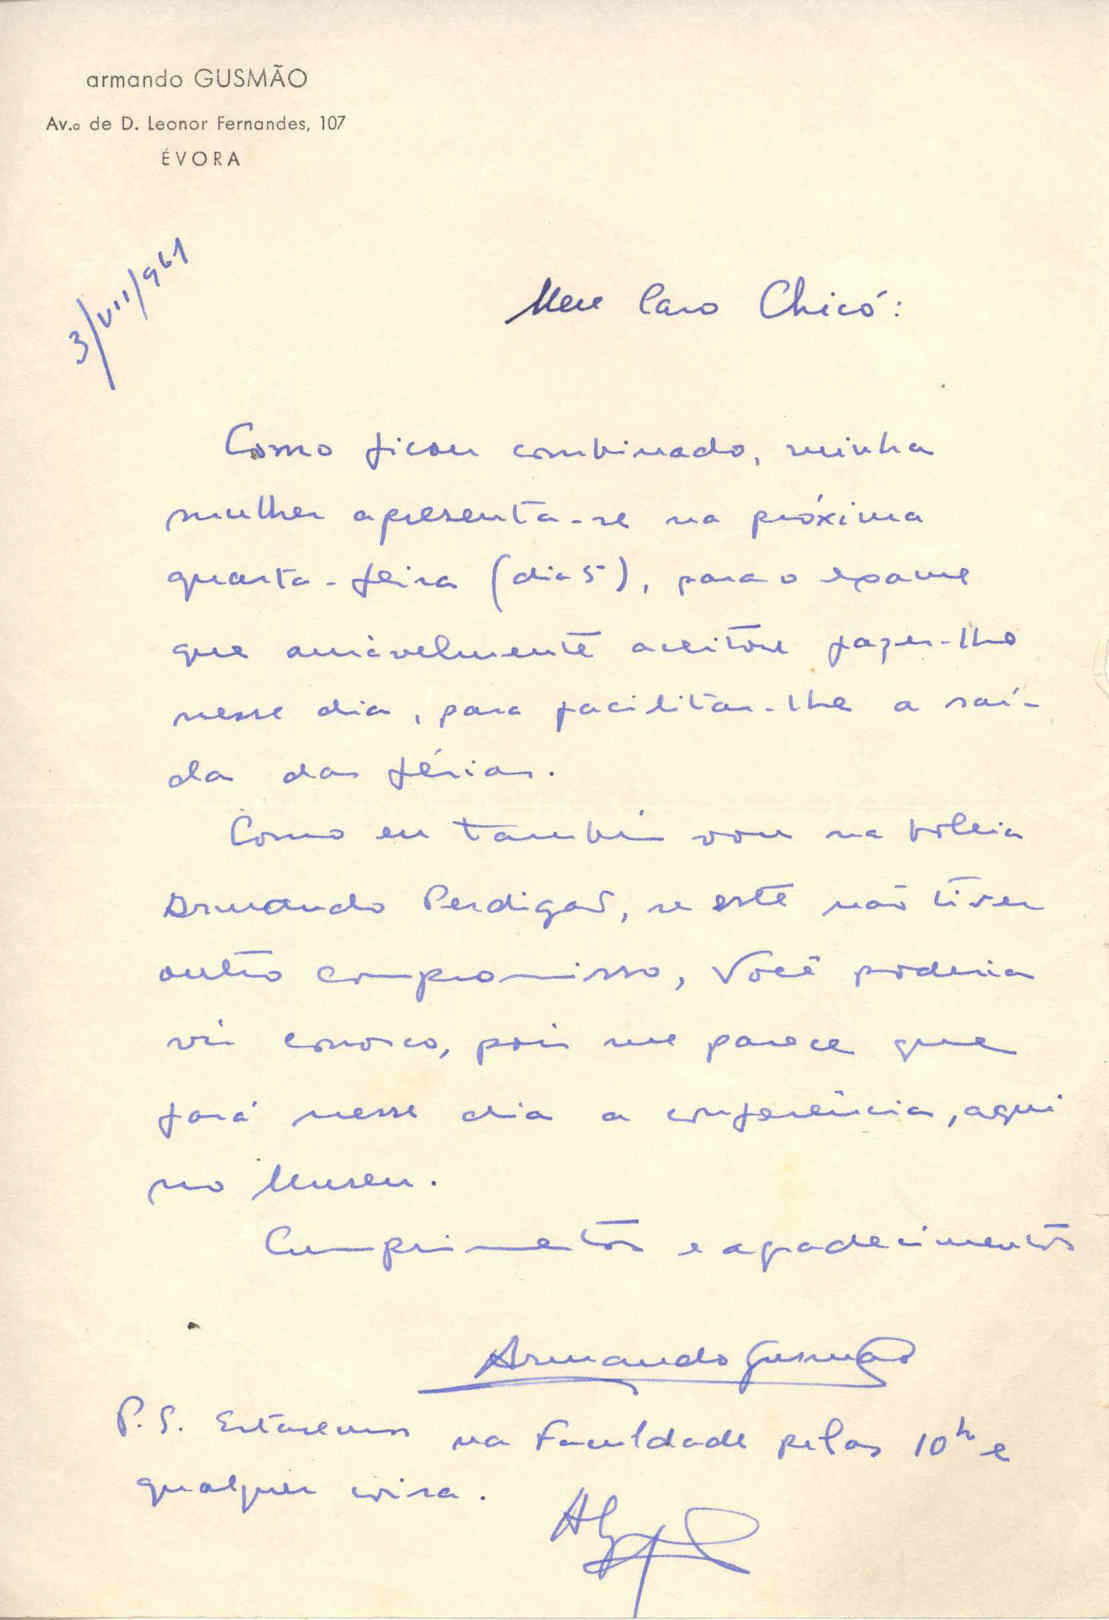 armando GUSMÃO
Av.a de D. Leonor Fernandes, 107
ÉVORA
3/VII/961
Meu Caro Chicó:
Como ficou combinado, minha
mulher apresenta-se na próxima
quarta-feira (dia 5), para o exame
que amàvelmente aceitou fazer-lhe
nesse dia, para facilitar-lhe a saí-
da das férias.
Como eu também vou na boleia
Armando Perdigão, se este não tiver
outro compromisso, Você poderia
vir conosco, pois me parece que
fará nesse dia a conferência, aqui
no Museu.
Cumprimentos e agradecimentos
Armando Gusmão
P.S. Estaremos na Faculdade pelas 10h e
qualquer coisa.